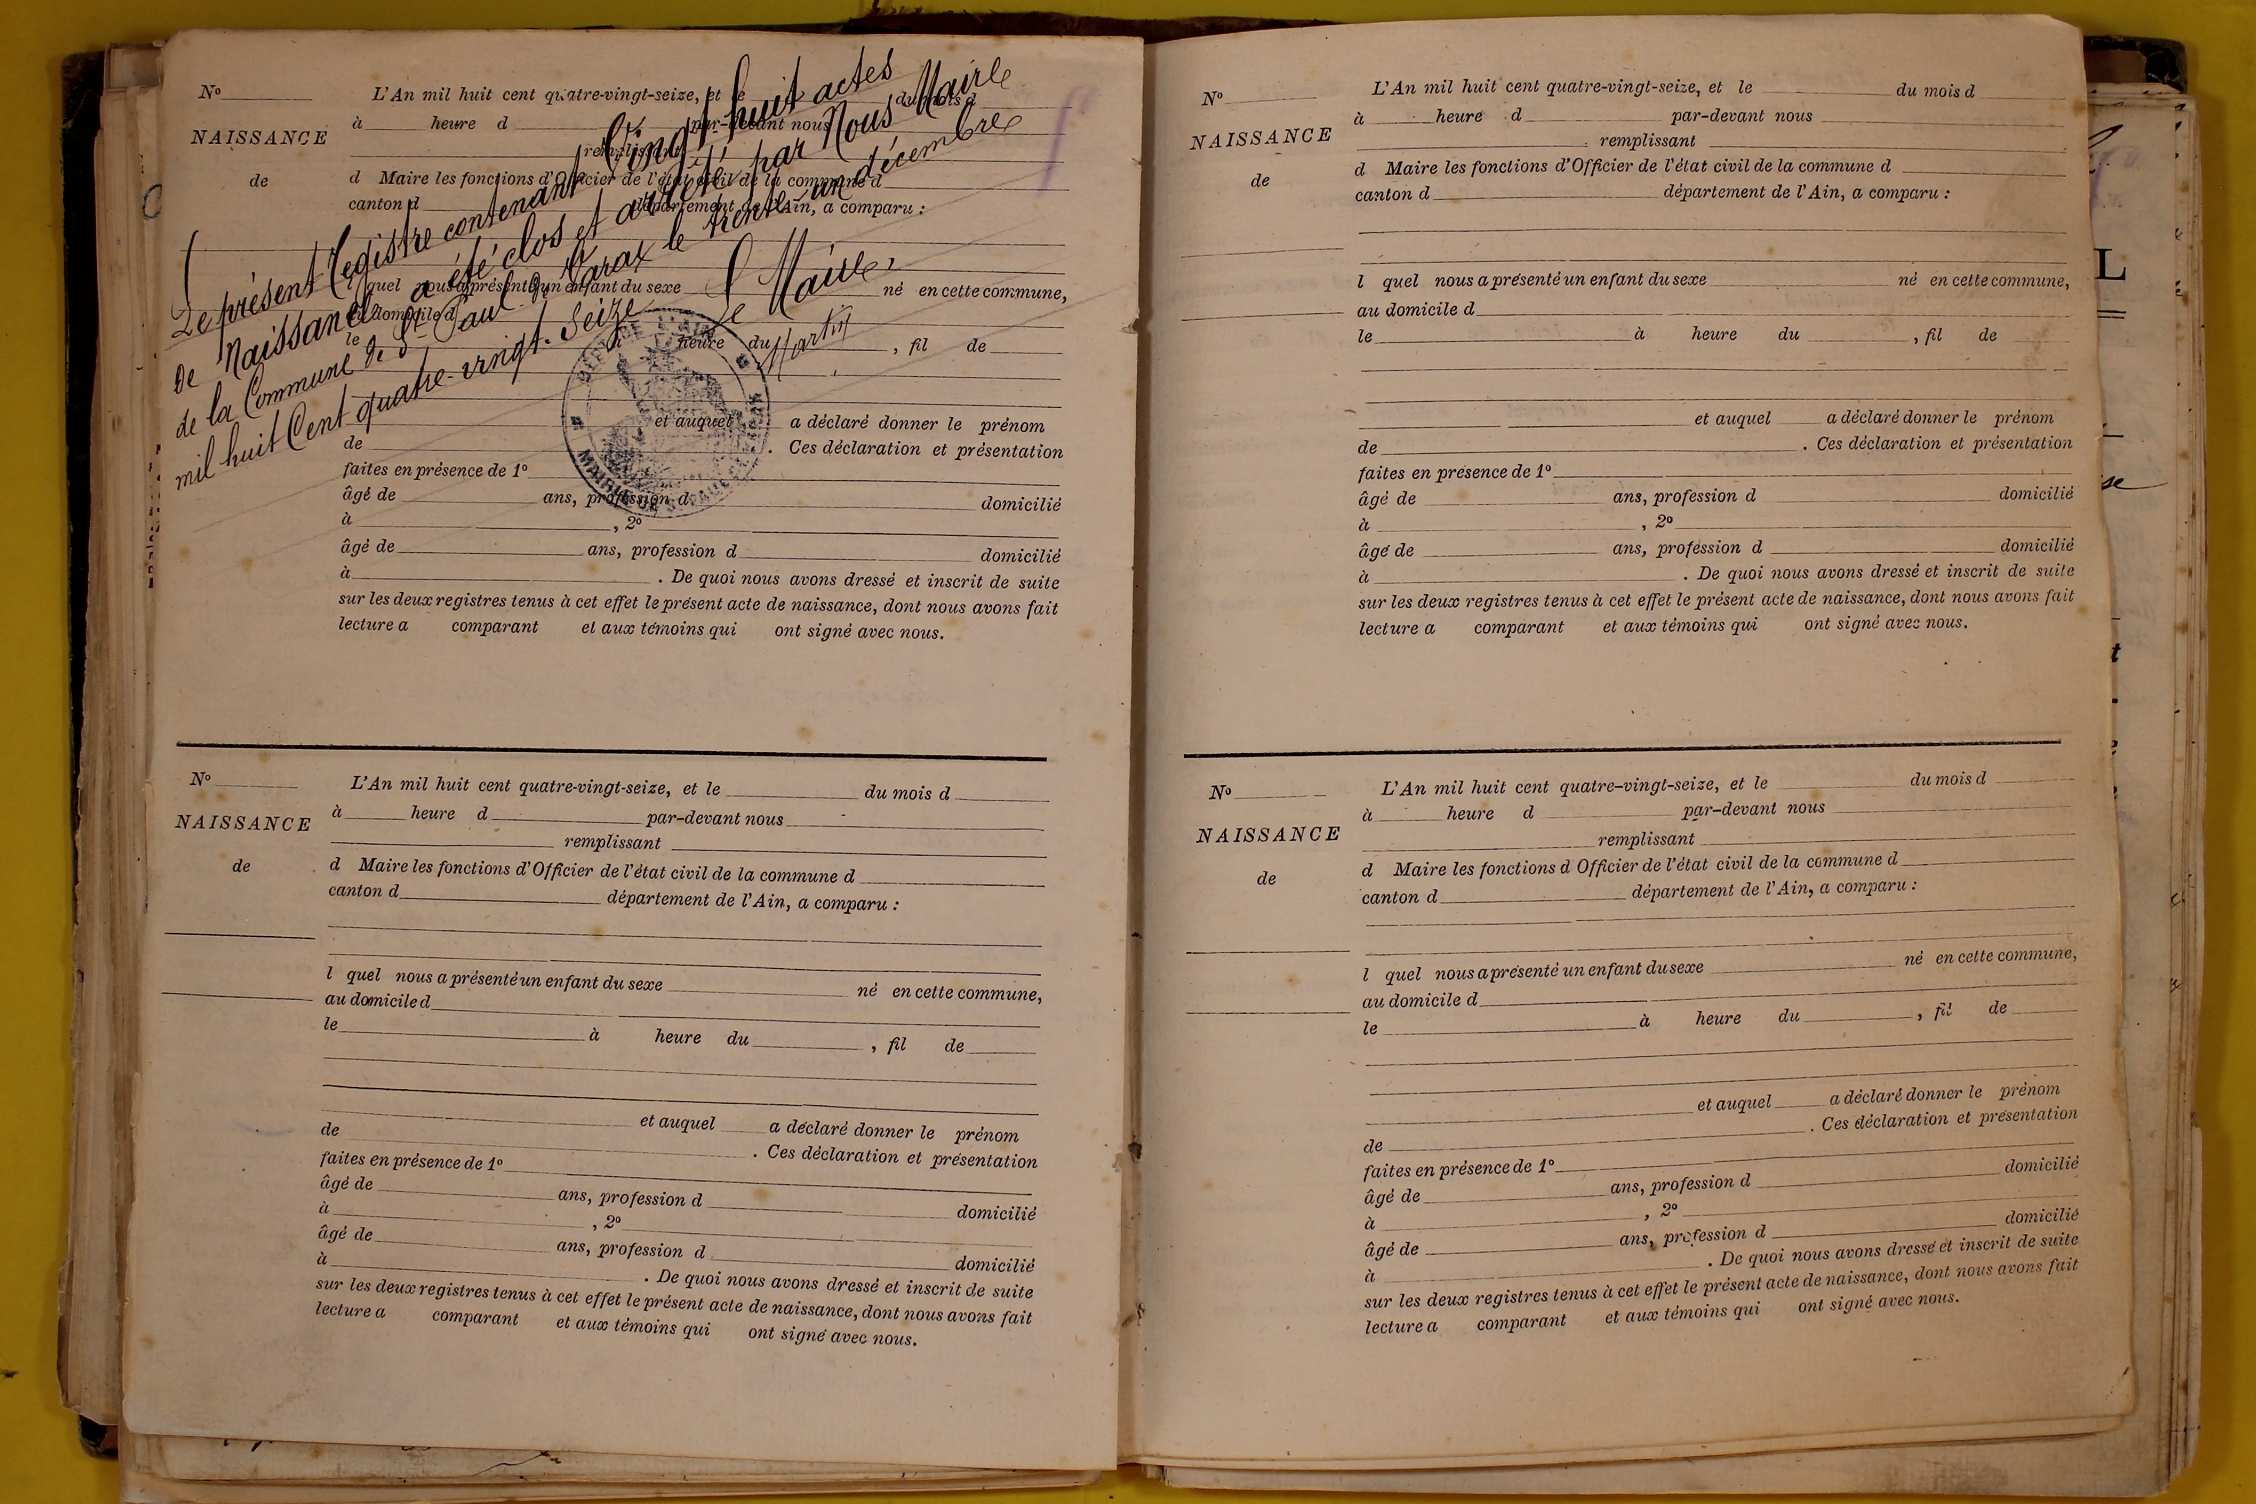 Le présent Registre contenant Vingt huit actes
de Naissance a été clos et arrêté par Nous Maire
de la Commune de St Paul de Varax le trente-un décembre
mil huit Cent quatre-vingt-Seize
Le Maire,
Martin
No
NAISSANCE
de
L'An mil huit cent quatre-vingt-seize, et le du mois d
à heure d par-devant nous
remplissant
d Maire les fonctions d'Officier de l'état civil de la commune d
canton d département de l'Ain, a comparu :
l quel nous a présenté un enfant du sexe né en cette commune,
au domicile d
le à heure du , fil de
et auquel a déclaré donner le prénom
de . Ces déclaration et présentation
faites en présence de 1o
âgé de ans, profession d domicilié
à , 2o
âgé de ans, profession d domicilié
à . De quoi nous avons dressé et inscrit de suite
sur les deux registres tenus à cet effet le présent acte de naissance, dont nous avons fait
lecture a comparant et aux témoins qui ont signé avec nous.
No
NAISSANCE
de
L'An mil huit cent quatre-vingt-seize, et le du mois d
à heure d par-devant nous
remplissant
d Maire les fonctions d'Officier de l'état civil de la commune d
canton d département de l'Ain, a comparu :
l quel nous a présenté un enfant du sexe né en cette commune,
au domicile d
le à heure du , fil de
et auquel a déclaré donner le prénom
de . Ces déclaration et présentation
faites en présence de 1o
âgé de ans, profession d domicilié
à , 2o
âgé de ans, profession d domicilié
à . De quoi nous avons dressé et inscrit de suite
sur les deux registres tenus à cet effet le présent acte de naissance, dont nous avons fait
lecture a comparant et aux témoins qui ont signé avec nous.
No
NAISSANCE
de
L'An mil huit cent quatre-vingt-seize, et le du mois d
à heure d par-devant nous
remplissant
d Maire les fonctions d'Officier de l'état civil de la commune d
canton d département de l'Ain, a comparu :
l quel nous a présenté un enfant du sexe né en cette commune,
au domicile d
le à heure du , fil de
et auquel a déclaré donner le prénom
de . Ces déclaration et présentation
faites en présence de 1o
âgé de ans, profession d domicilié
à , 2o
âgé de ans, profession d domicilié
à . De quoi nous avons dressé et inscrit de suite
sur les deux registres tenus à cet effet le présent acte de naissance, dont nous avons fait
lecture a comparant et aux témoins qui ont signé avec nous.
No
NAISSANCE
de
L'An mil huit cent quatre-vingt-seize, et le du mois d
à heure d par-devant nous
remplissant
d Maire les fonctions d Officier de l'état civil de la commune d
canton d département de l'Ain, a comparu :
l quel nous a présenté un enfant du sexe né en cette commune,
au domicile d
le à heure du , fil de
et auquel a déclaré donner le prénom
de . Ces déclaration et présentation
faites en présence de 1o
âgé de ans, profession d domicilié
à , 2o
âgé de ans, profession d domicilié
à . De quoi nous avons dressé et inscrit de suite
sur les deux registres tenus à cet effet le présent acte de naissance, dont nous avons fait
lecture a comparant et aux témoins qui ont signé avec nous.